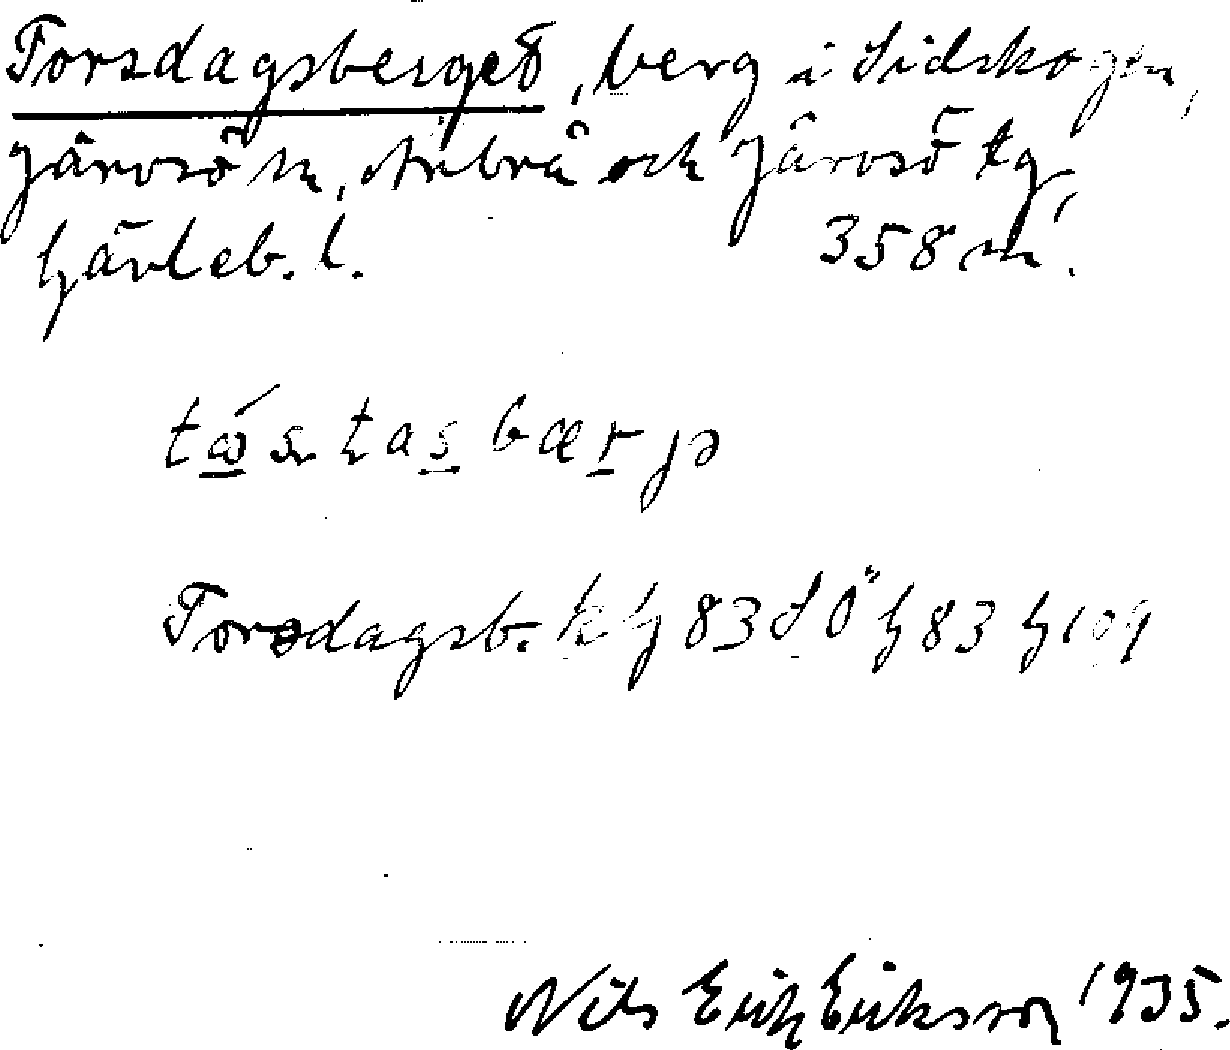 Torsdagsberget, berg i Sidskogen,
Järvsö sn, Arbrå och Järvsö tg,
Gävleb. l. 358 m.
Torsdagsb. k G 83 SÖ G 83 G 109
Nils Erik Eriksson 1935.